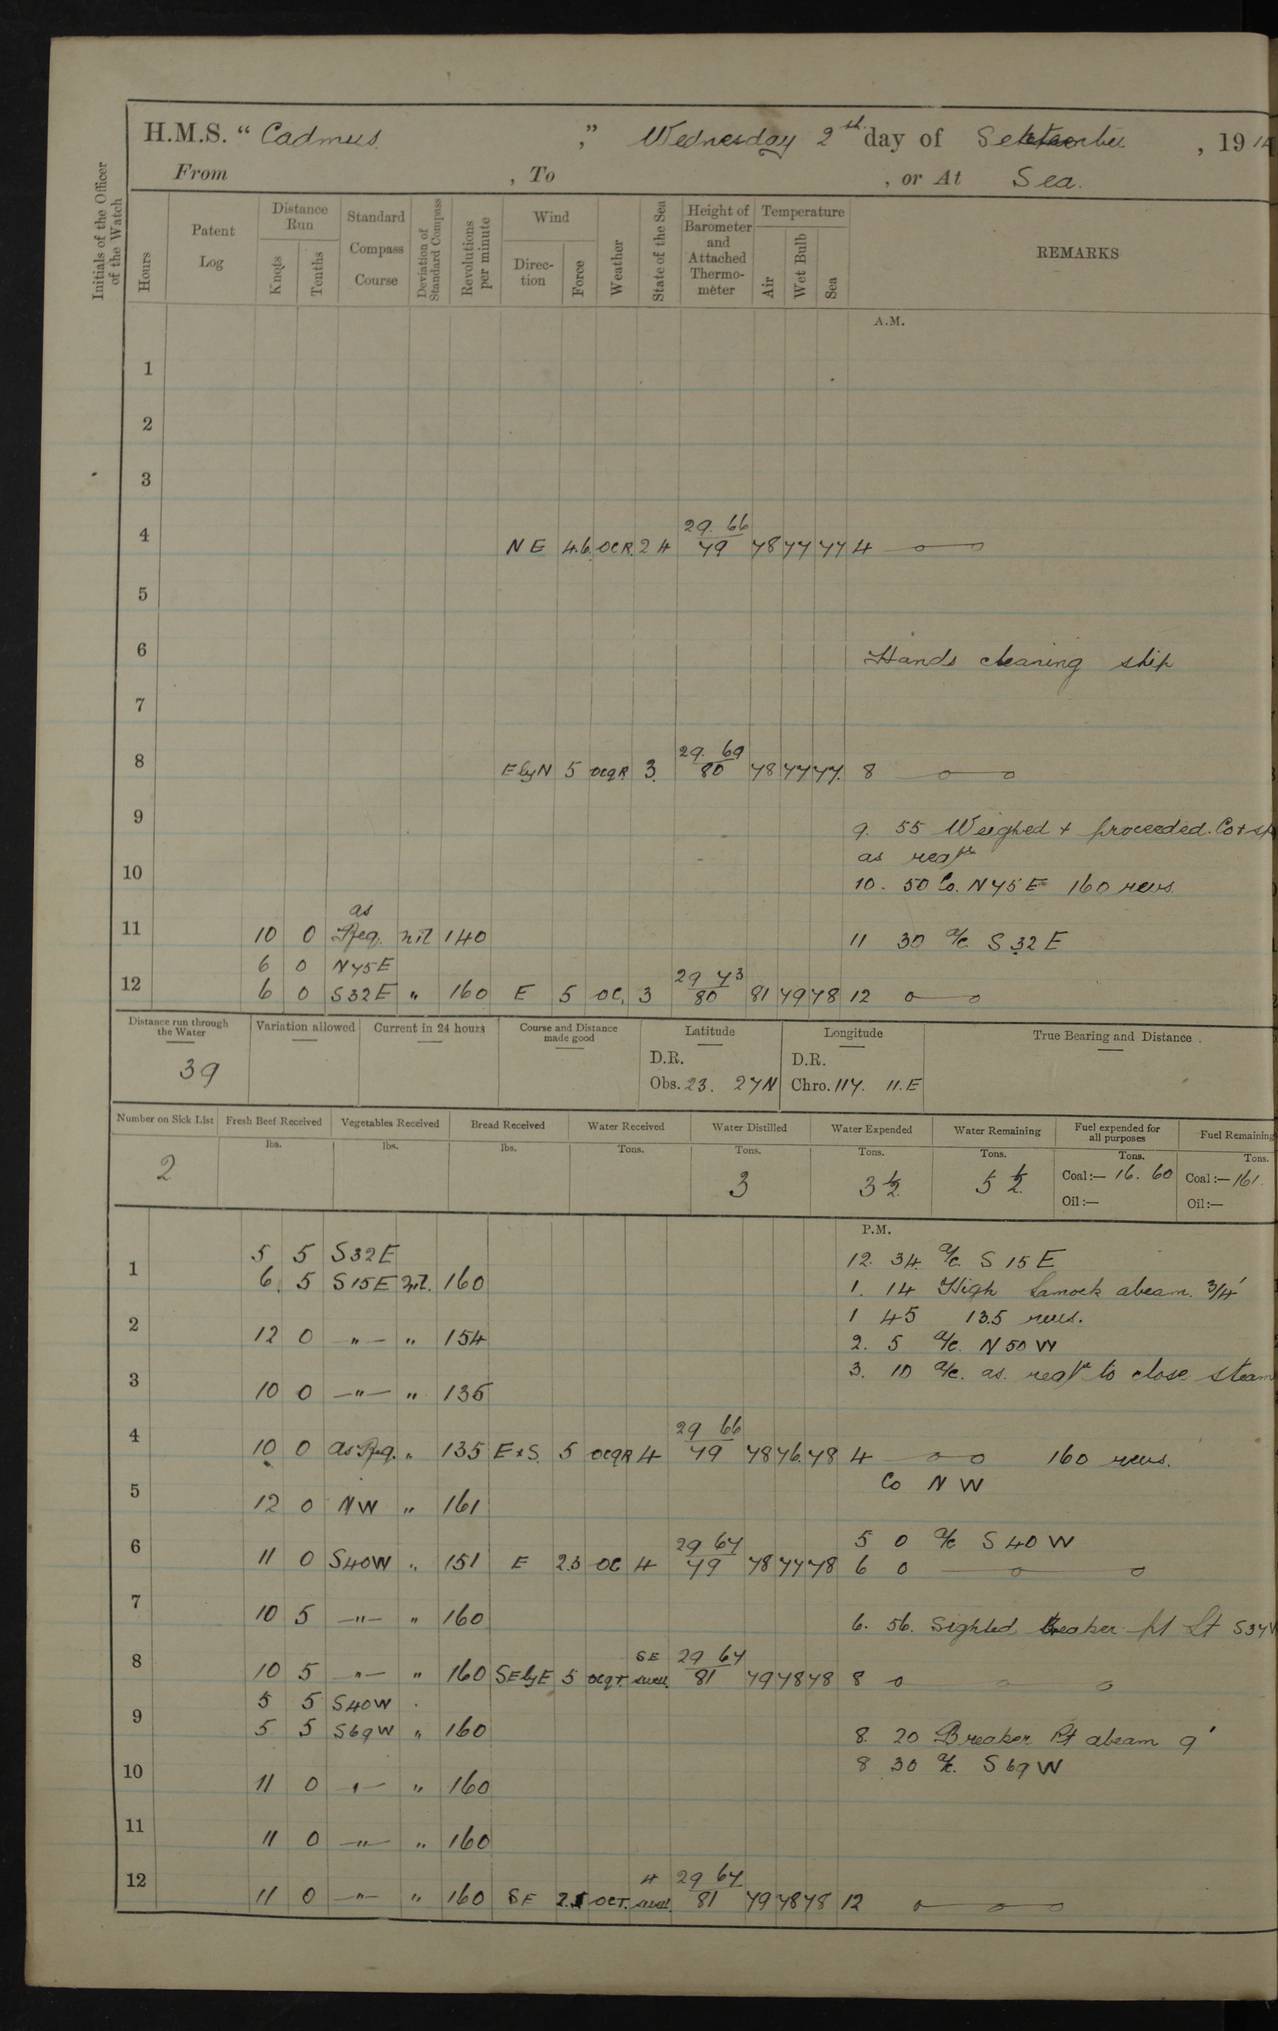 H.M.S. "Cadmus", Wednesday 2th day of September, 1914
From , To , or At Sea.
Initials of the Officer of the Watch
Hours
Patent Log
Distance Run
Knots
Tenths
Standard Compass Course
Deviation of Standard Compass
Revolutions per minute
Wind
Direction
Force
Weather
State of the Sea
Height of Barometer and Attached Thermometer
Temperature
Air
Wet Bulb
Sea
REMARKS
A.M.
1
2
3
29. 66
4 NE 4.6. OCR. 2 4 79 78 77 77 4
5
6 Hands cleaning ship
7
29. 69
8 E by N 5 ocqR 3. 80 78 77 77. 8
9 9. 55 Weighed + proceeded. Co + sp
as reqd
10 10. 50 Co. N75E 160 revs.
as
11 10 0 Req. nil 140 11 30 a/c S32E
6 0 N75E
29 73
12 6 0 S32E " 160 E 5 OC, 3 80 81 79 78 12
Distance run through the Water
39
Variation allowed
Current in 24 hours
Course and Distance made good
Latitude
D.R.
Obs. 23. 27N
Longitude
D.R.
Chro. 117. 11.E
True Bearing and Distance
Number on Sick List
2
Fresh Beef Received
lbs.
Vegetables Received
lbs.
Bread Received
lbs.
Water Received
Tons.
Water Distilled
Tons.
3
Water Expended
Tons.
3 1/2
Water Remaining
Tons.
5 1/2
Fuel expended for all purposes
Tons.
Coal:— 16. 60
Oil:—
Fuel Remaining
Tons.
Coal:— 161.
Oil:—
P.M.
5 5 S32E 12. 34 a/c S15E
1 6. 5 S15E nil. 160 1. 14 High Lamock abeam. 3/4'
1 45 135 revs.
2 12 0 —"— " 154 2. 5 a/c. N50W
3. 10 a/c. as reqd to close steam
3 10 0 —"— " 135
29 66
4 10 0 as Req. " 135 E+S. 5 ocqR 4 79 78 76. 78 4 160 revs.
Co NW
5 12 0 NW " 161
5 0 a/c S40W
29 67
6 11 0 S40W " 151 E 2.3 OC 4 79 78 77 78 6 0
7 10 5 —"— " 160 6. 56. Sighted Breaker pt Lt S37W
SE 29 67
8 10 5 —"— " 160 SE by E 5 ocqr swell 81 79 78 78 8
5 5 S40W
9 5 5 S69W " 160 8. 20 Breaker Pt abeam 9'
8 30 a/c. S69W
10 11 0 —"— " 160
11 11 0 —"— " 160
4 29 67
12 11 0 —"— " 160 SE OCT. swell. 81 79 78 78 12